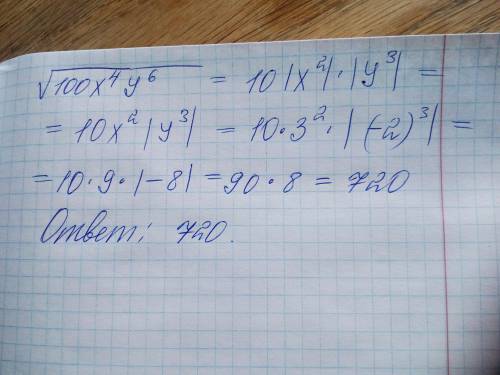 √100x⁴y⁶ = 10|x²|·|y³| =
= 10x²|y³| = 10·3²·|(-2)³| =
= 10·9·|-8| = 90·8 = 720
Ответ: 720.